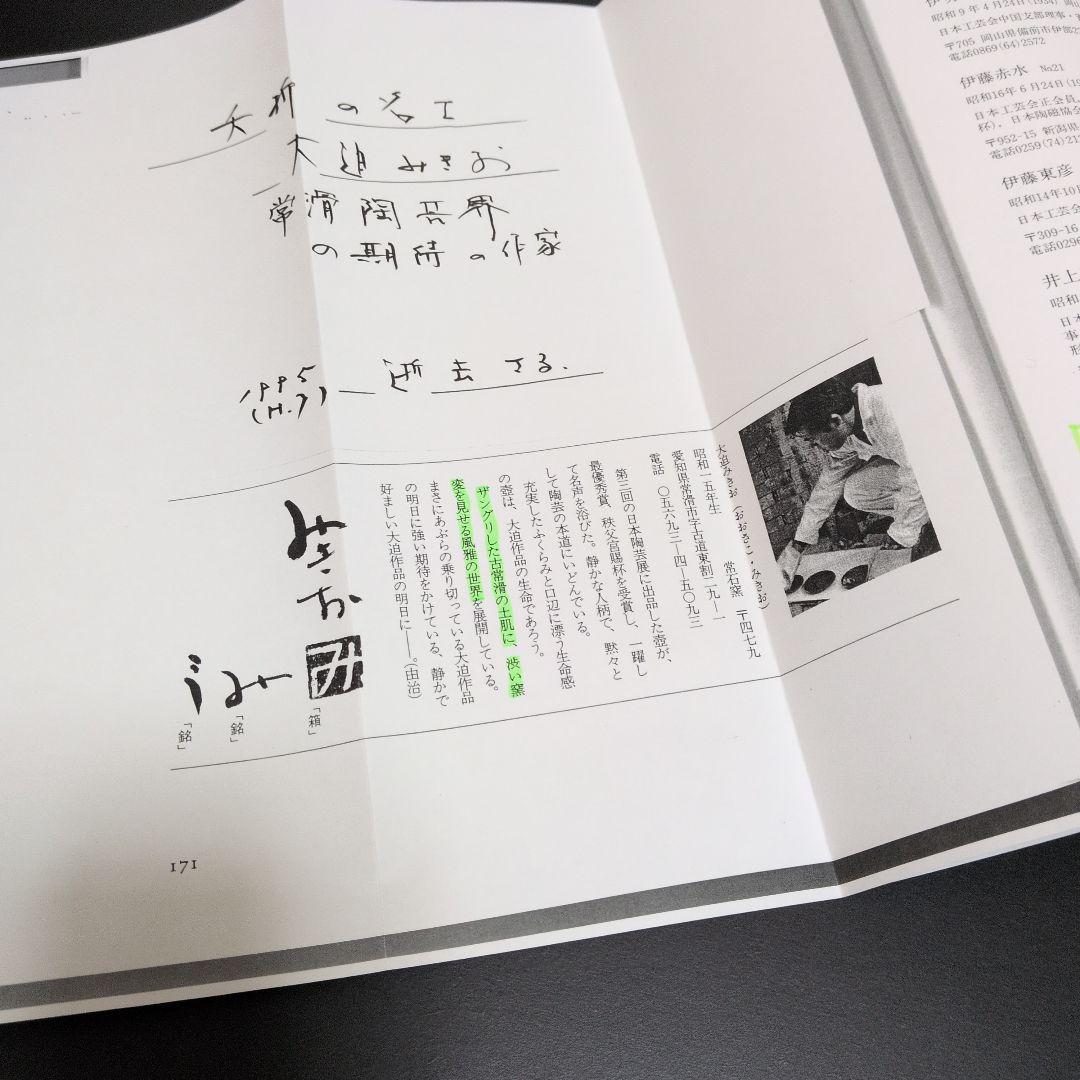 夭折の名工
大迫みきお
常滑陶芸界
の期待の作家
1995
(H.7)
逝去さる.
大迫みきお(おおさこ・みきお)
昭和一五年生 常石窯 〒四七九
愛知県常滑市字古道東割二九—一
電話 〇五六九三—四—五〇九三
第三回の日本陶芸展に出品した壺が、
最優秀賞、秩父宮賜杯を受賞し、一躍し
て名声を浴びた。静かな人柄で、黙々と
して陶芸の本道にいどんでいる。
充実したふくらみと口辺に漂う生命感
の壺は、大迫作品の生命であろう。
ザングリした古常滑の土肌に、渋い窯
変を見せる風雅の世界を展開している。
まさにあぶらの乗り切っている大迫作品
の明日に強い期待をかけている、静かで
好ましい大迫作品の明日に——。(由治)
みきお
み
「箱」
「銘」
「銘」
171
昭和9年4月24日(1934)
日本工芸会中国支部理事・
〒705 岡山県備前市伊部
電話0869(64)2572
伊藤赤水 No21
昭和16年6月24日
日本工芸会正会員
杯), 日本陶磁協会
〒952-15 新潟県
電話0259(74)21
伊藤東彦
昭和14年10
日本工芸会
〒309-16
電話0296
井上
昭和
日
事
形